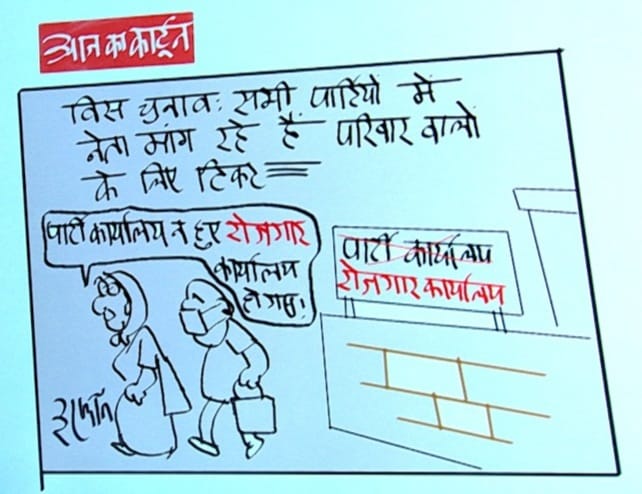 आज का कार्टून
विस चुनाव: सभी पार्टियों में
नेता मांग रहे हैं परिवार वालों
के लिए टिकट
पार्टी कार्यालय न हुए रोजगार
कार्यालय
हो गए!
पार्टी कार्यालय
रोजगार कार्यालय
इरफान